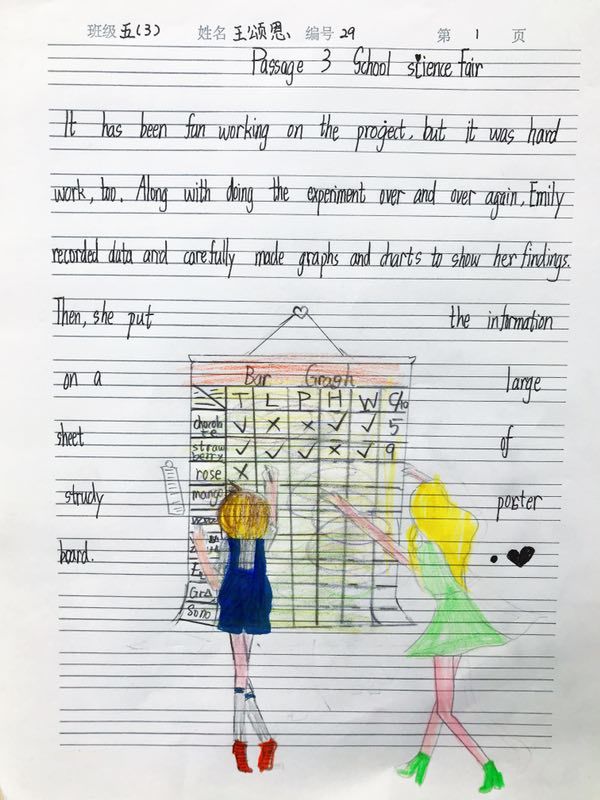 班级 五(3) 姓名 王颂恩 编号 29 第 1 页
Passage 3 School science Fair
It has been fun working on the project, but it was hard
work, too. Along with doing the experiment over and over again, Emily
recorded data and carefully made graphs and charts to show her findings.
Then, she put the information
on a large
sheet of
strudy poster
board.
Bar Gragh
T L P H W C/10
chocolate 5
strawberry 9
rose
mango
Gra
Sono